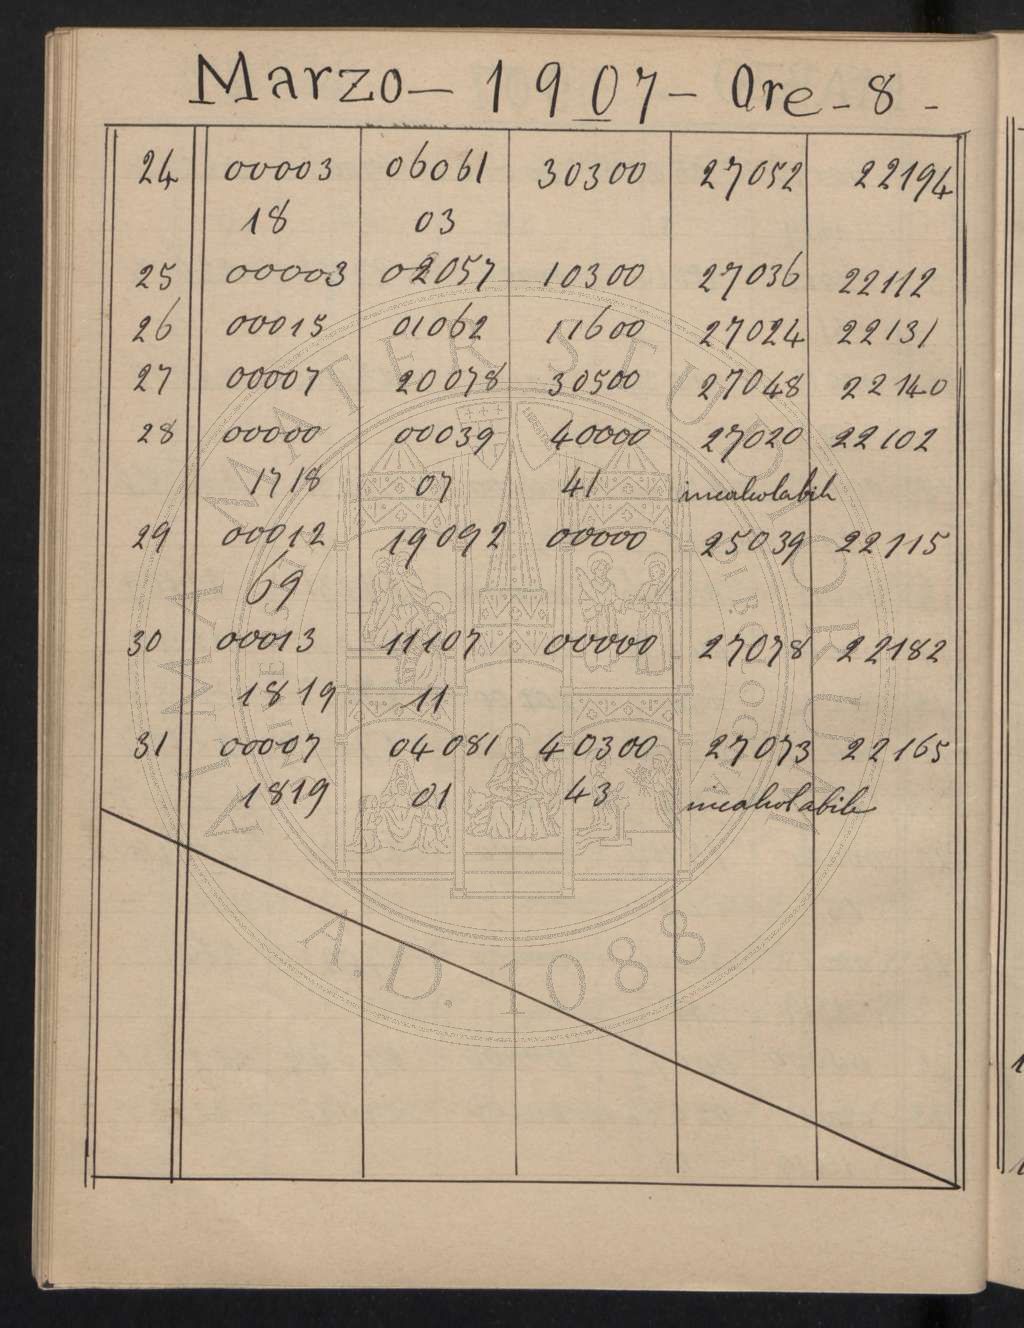 Marzo - 1907 - Ore - 8 -
24 00003 06061 30300 27052 22194
18 03
25 00003 02057 10300 27036 22112
26 00015 01062 11600 27024 22131
27 00007 20078 30500 27048 22140
28 00000 00039 40000 27020 22102
1718 07 41 incalcolabile
29 00012 19092 00000 25039 22115
69
30 00013 11107 00000 27078 22182
1819 11
31 00007 04081 40300 27073 22165
1819 01 43 incalcolabile
ALMA MATER STUDIORUM
A.D. 1088